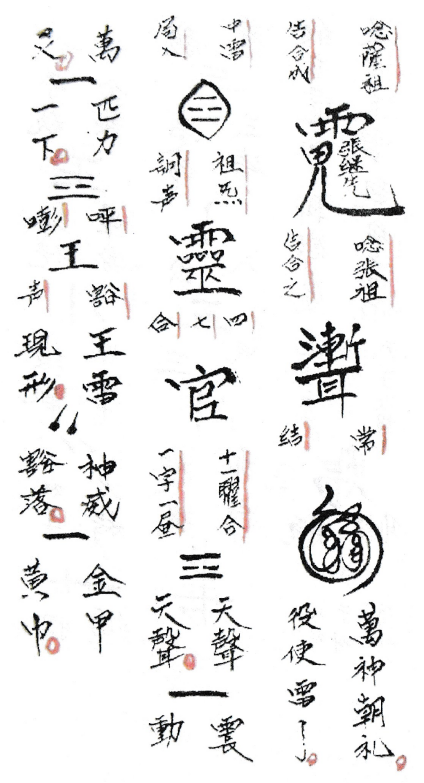 唸薩祖
告合成
張継先
唸張祖
告合之
常
結
萬神朝礼
役使雷了
中雷
局入
☲
祖炁
調声
靈
四七合
官
十一醒合
一字一届
三
天聲
天聲
一
震
動
萬
灵
一
匹力
一下
三
呯
嘭
王
豁
声
王雷
現形
〃
神威
豁落
一
金甲
黃巾